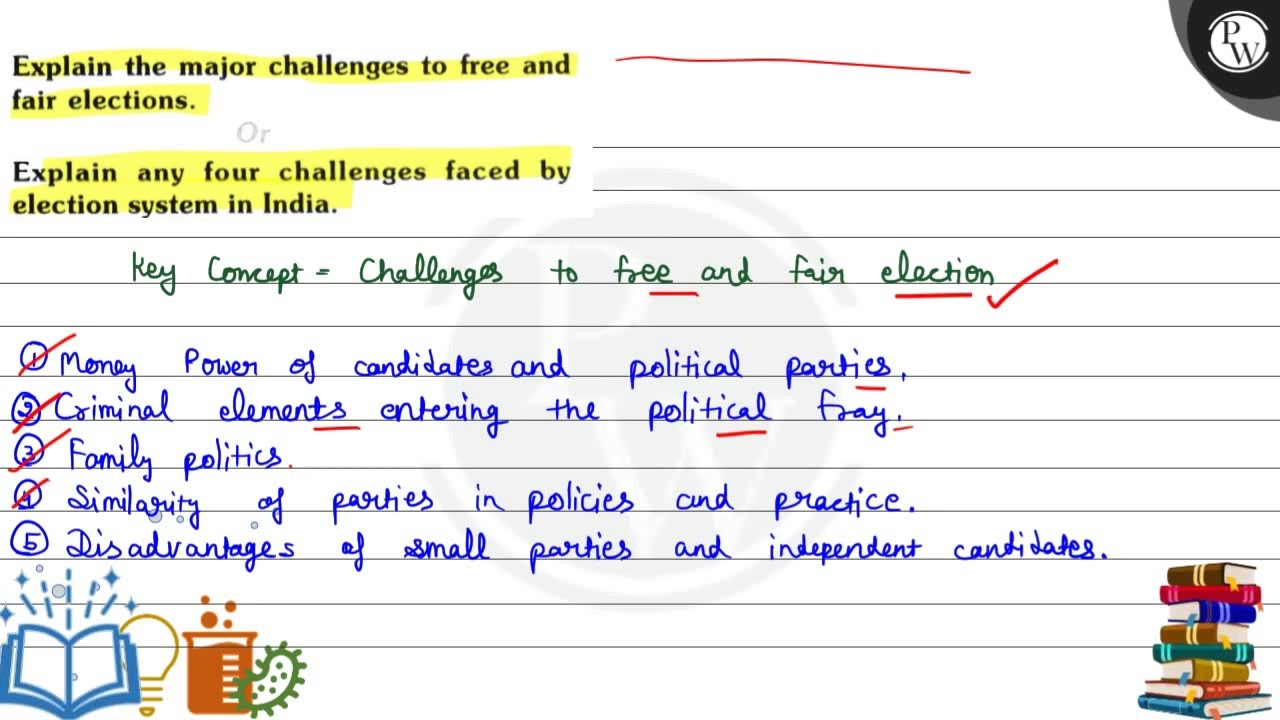 Explain the major challenges to free and
fair elections.
Or
Explain any four challenges faced by
election system in India.
Key Concept = Challenges to free and fair election
① Money Power of candidates and political parties.
② Criminal elements entering the political fray.
③ Family politics.
④ Similarity of parties in policies and practice.
⑤ Disadvantages of small parties and independent candidates.
PW
PW